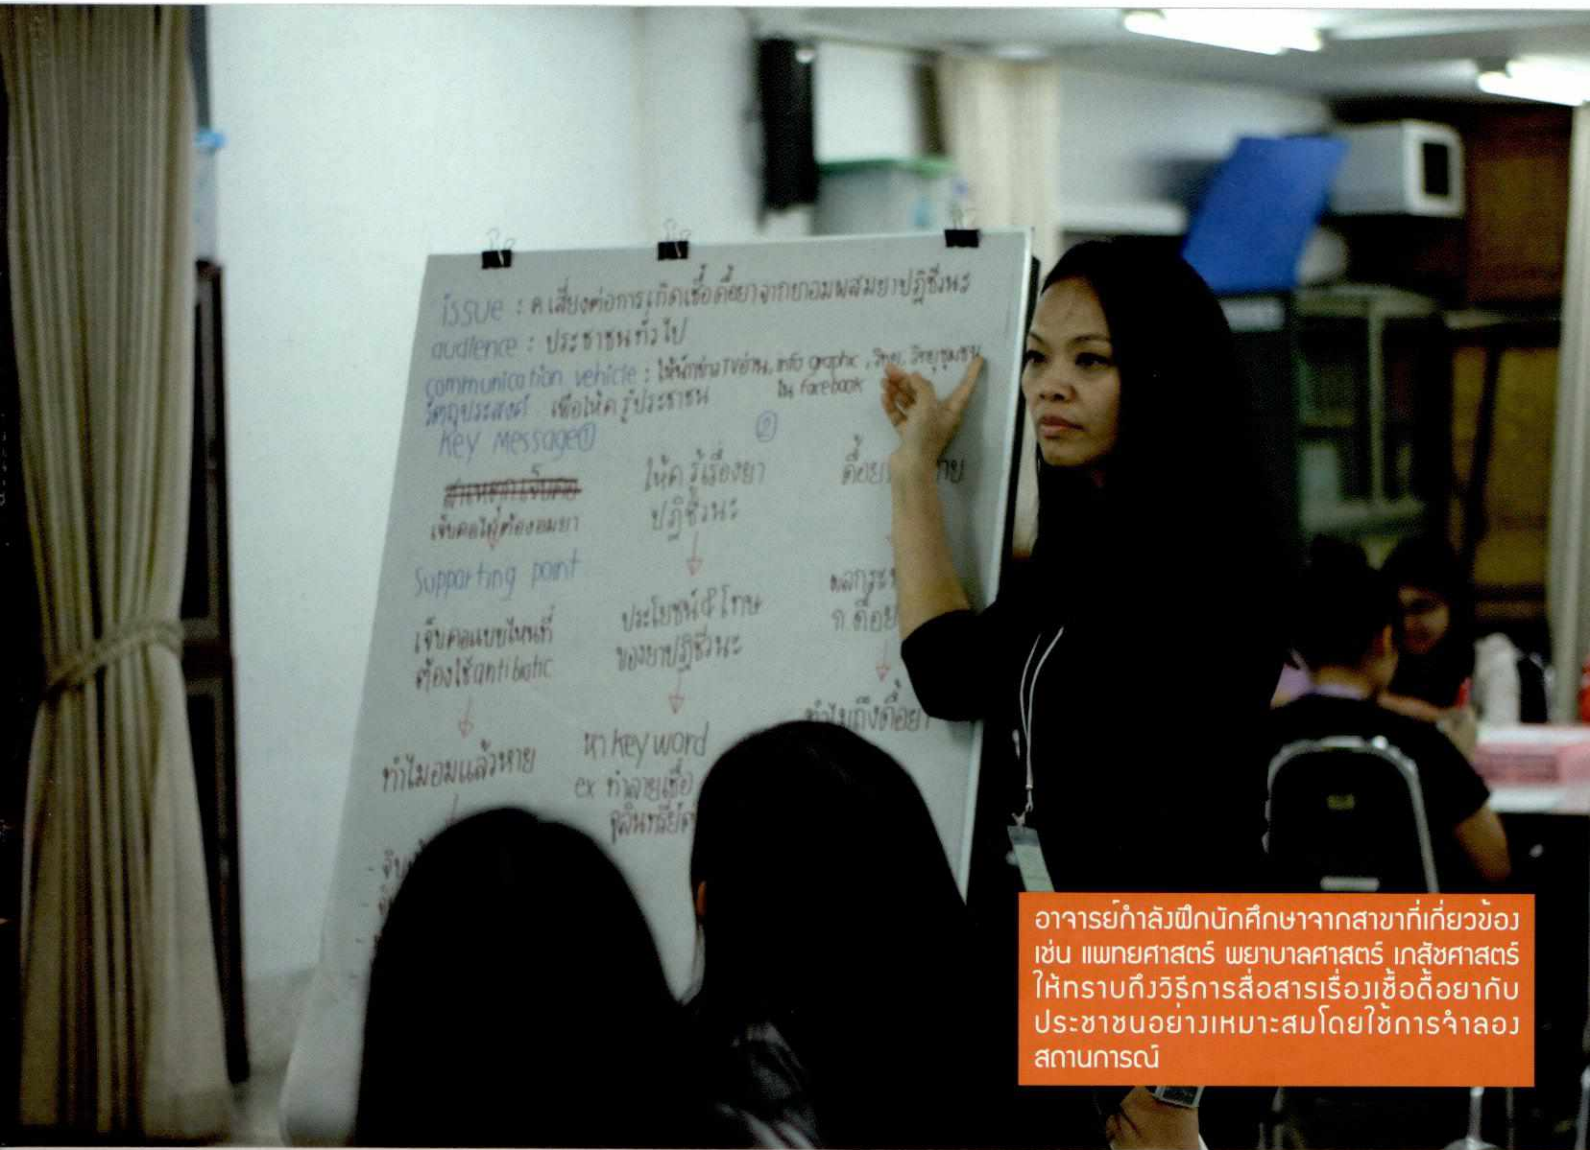 issue : ค.เสี่ยงต่อการเกิดเชื้อดื้อยาจากยาอมผสมยาปฏิชีวนะ
audience : ประชาชนทั่วไป
communication vehicle : ให้นักข่าวTVอ่าน, info graphic , วิทยุ, วิทยุชุมชน
ใน facebook
วัตถุประสงค์ เพื่อให้ค.รู้ประชาชน
Key message①
②
เจ็บคอไม่ต้องอมยา
ให้ค.รู้เรื่องยา
ปฏิชีวนะ
ดื้อยา
Supporting point
เจ็บคอแบบไหนที่
ต้องใช้antibiotic
ประโยชน์&โทษ
ของยาปฏิชีวนะ
ทำไมอมแล้วหาย
หา key word
ex ทำลายเชื้อ
จุลินทรีย์
ทำไมถึงดื้อยา
อาจารย์กำลังฝึกนักศึกษาจากสาขาที่เกี่ยวข้อง
เช่น แพทยศาสตร์ พยาบาลศาสตร์ เภสัชศาสตร์
ให้ทราบถึงวิธีการสื่อสารเรื่องเชื้อดื้อยากับ
ประชาชนอย่างเหมาะสมโดยใช้การจำลอง
สถานการณ์